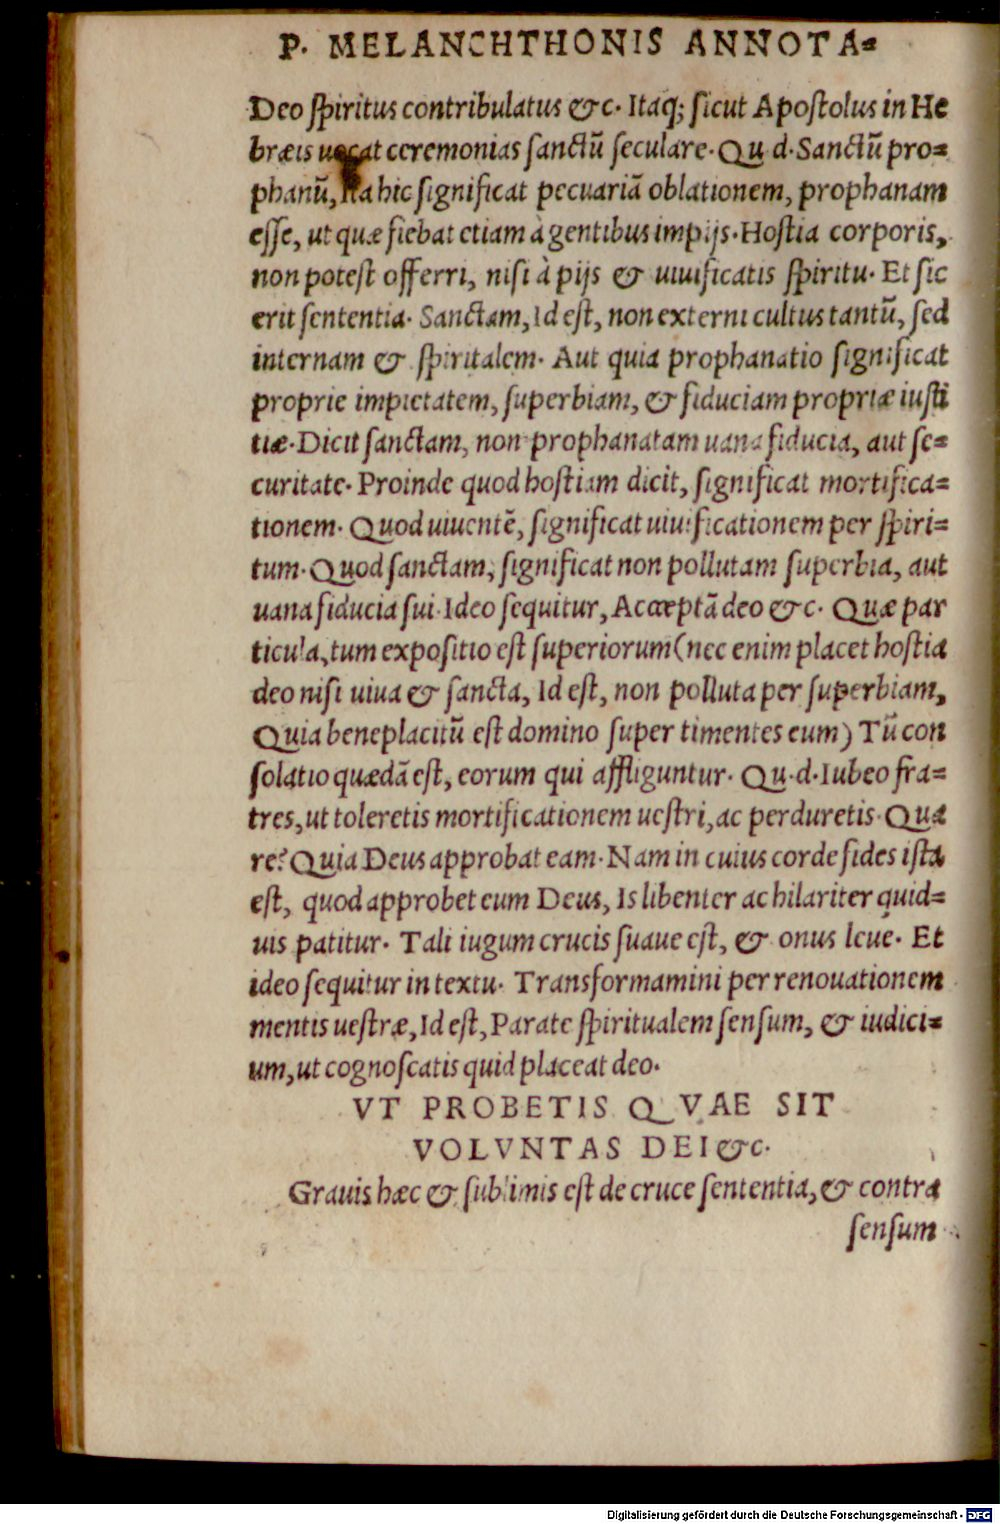 P. MELANCHTHONIS ANNOTA-
Deo ſpiritus contribulatus &c. Itaq; ſicut Apoſtolus in He
bræis uocat ceremonias ſanctũ ſeculare. Qu. d. Sanctũ pro-
phanũ, ita hic ſignificat pecuariã oblationem, prophanam
eſſe, ut quæ fiebat etiam à gentibus impijs. Hoſtia corporis,
non poteſt offerri, niſi à pijs & uiuificatis ſpiritu. Et ſic
erit ſententia. Sanctam, Id eſt, non externi cultus tantũ, ſed
internam & ſpiritalem. Aut quia prophanatio ſignificat
proprie impietatem, ſuperbiam, & fiduciam propriæ iuſti
tiæ. Dicit ſanctam, non prophanatam uana fiducia, aut ſe-
curitate. Proinde quod hoſtiam dicit, ſignificat mortifica-
tionem. Quod uiuentẽ, ſignificat uiuificationem per ſpiri-
tum. Quod ſanctam, ſignificat non pollutam ſuperbia, aut
uana fiducia ſui. Ideo ſequitur, Accœptã deo &c. Quæ par
ticula, tum expoſitio eſt ſuperiorum (nec enim placet hoſtia
deo niſi uiua & ſancta, Id eſt, non polluta per ſuperbiam,
Quia beneplacitũ eſt domino ſuper timentes eum) Tũ con
ſolatio quædã eſt, eorum qui affliguntur. Qu. d. Iubeo fra-
tres, ut toleretis mortificationem ueſtri, ac perduretis. Qua
re? Quia Deus approbat eam. Nam in cuius corde fides iſta
eſt, quod approbet eum Deus, Is libenter ac hilariter quid-
uis patitur. Tali iugum crucis ſuaue eſt, & onus leue. Et
ideo ſequitur in textu. Transformamini per renouationem
mentis ueſtræ, Id eſt, Parate ſpiritualem ſenſum, & iudici-
um, ut cognoſcatis quid placeat deo.
VT PROBETIS QVAE SIT
VOLVNTAS DEI &c.
Grauis hæc & ſublimis eſt de cruce ſententia, & contra
ſenſum
Digitalisierung gefördert durch die Deutsche Forschungsgemeinschaft - DFG